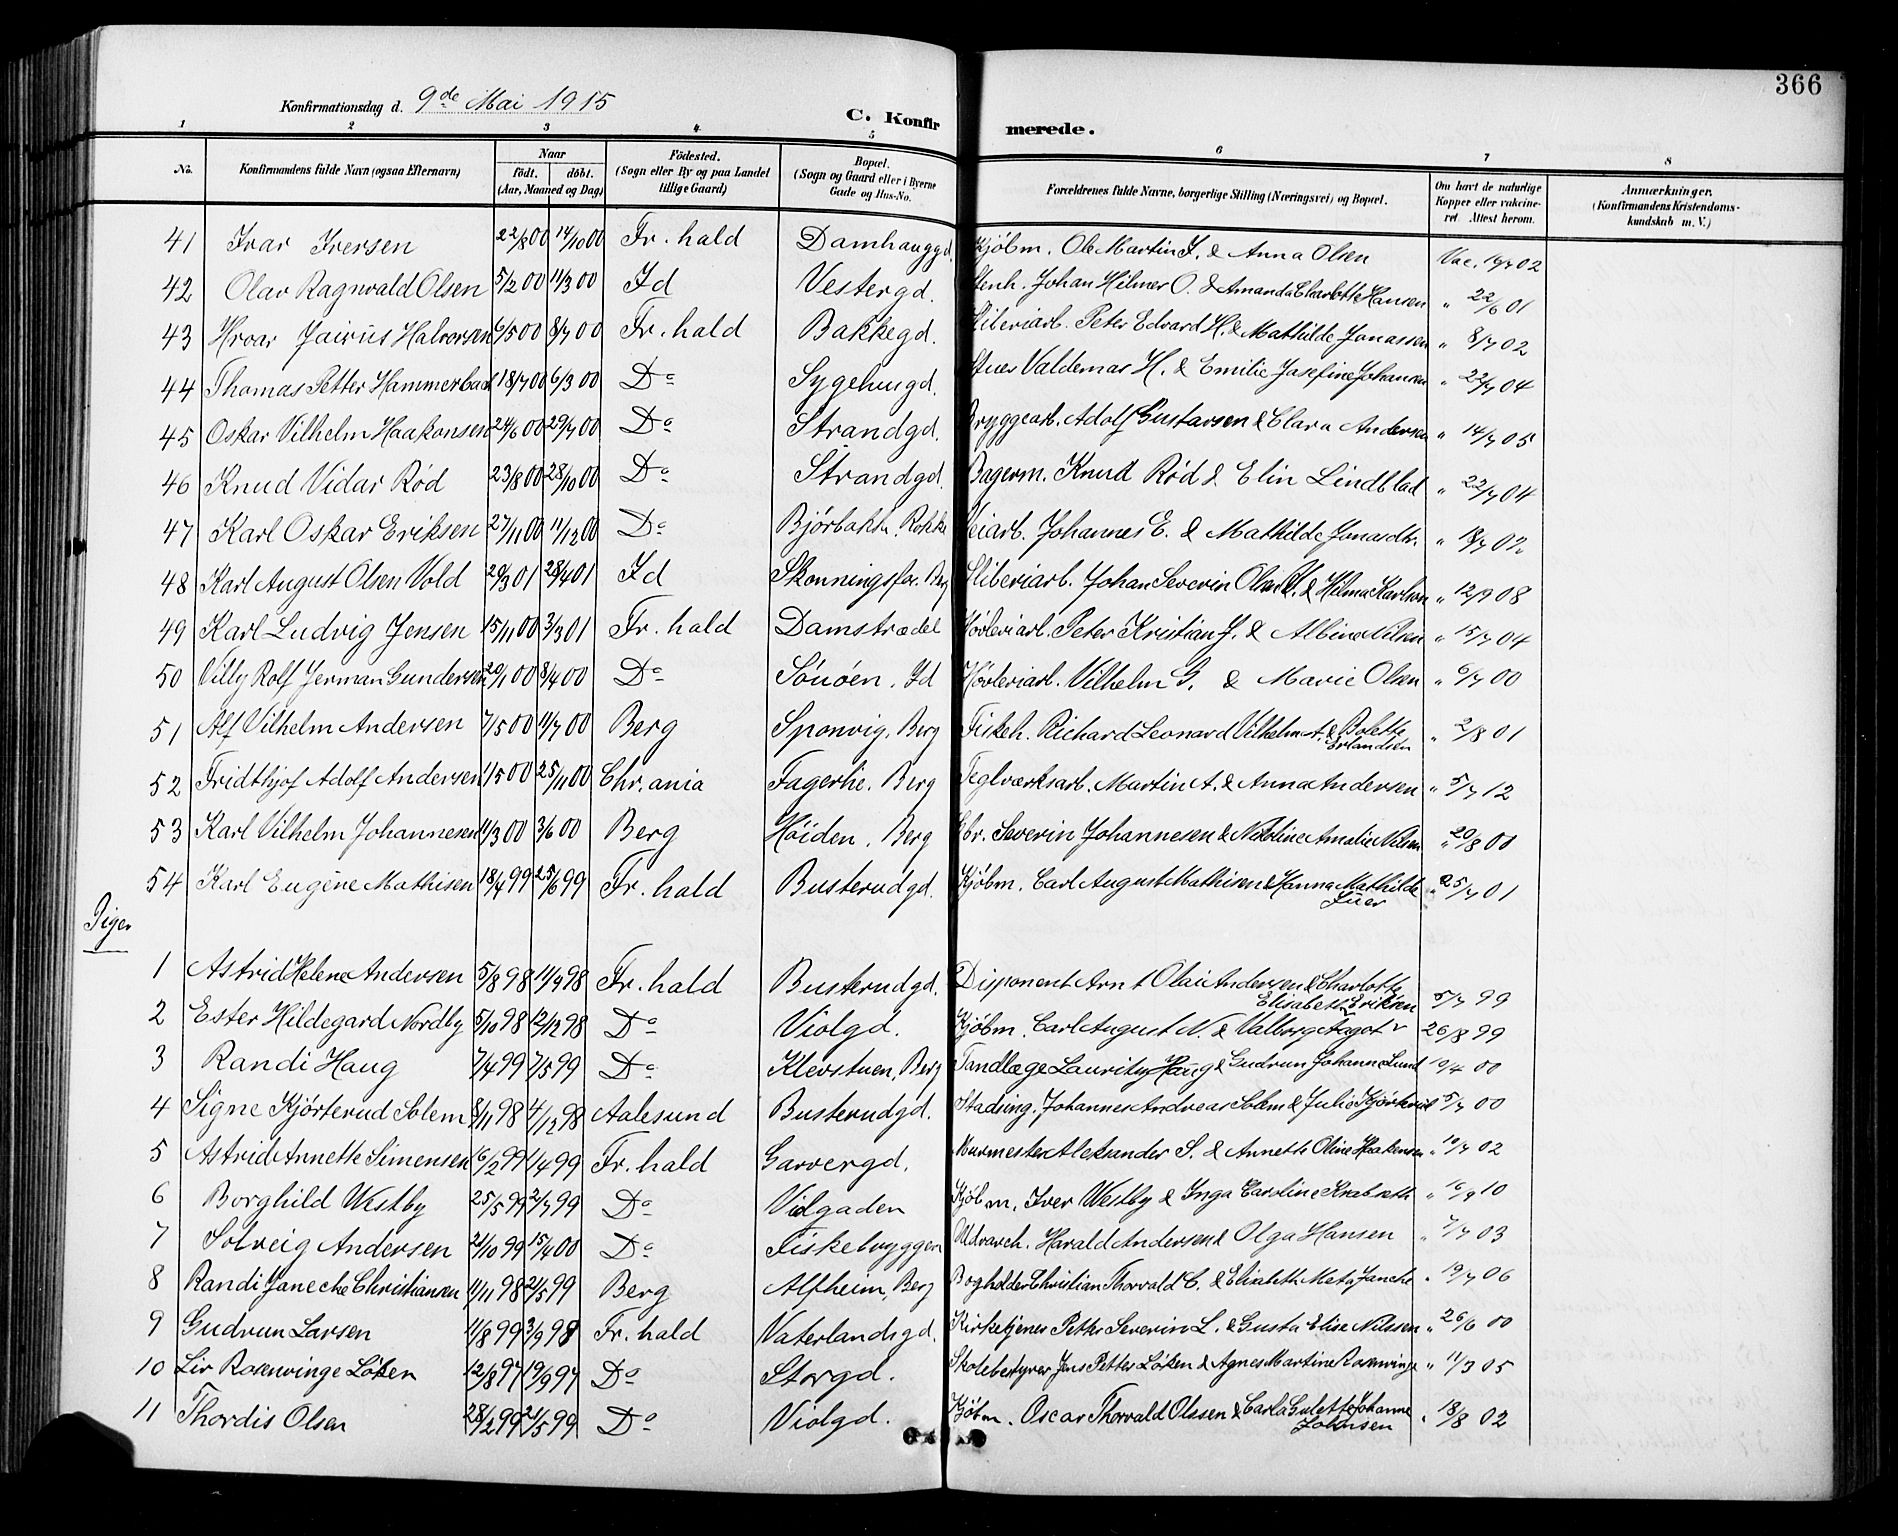 366
Konfirmationsdag d. 9de Mai 1915
C. Konfirmerede.
1 2 3 4 5 6 7 8
No. Konfirmandens fulde Navn (ogsaa Efternavn) Naar födt. döbt. (Aar, Maaned og Dag) Födested. (Sogn eller By og paa Landet tillige Gaard) Bopæl. (Sogn og Gaard eller i Byerne Gade og Hus-No. Forældrenes fulde Navne, borgerlige Stilling (Næringsvei) og Bopæl. Om havt de naturlige Kopper eller vakcineret. Attest herom. Anmærkninger. (Konfirmandens Kristendomskundskab m. V.)
41 Ivar Iversen 22/8 00 14/10 00 Fr. hald Damhauggd. Kjøbm. Ole Martin I. & Anna Olsen Vac. 02
42 Olav Ragnvald Olsen 5/2 00 11/3 00 Id Vestergd. Stenh. Johan Hilmer O. & Amanda Charlotte Hansen " 22/6 01
43 Hroar Jairus Halvorsen 6/5 00 8/7 00 Fr. hald Bakkegd. Sliberiarb. Peter Edvard H. & Mathilde Jonassen " 8/7 02
44 Thomas Petter Hammerbæk 18/ 00 6/3 00 Do Sygehusgd. Stuer Valdemar H. & Emilie Josefine Johansen " 22/7 04
45 Oskar Vilhelm Haakonsen 24/6 00 29/7 00 Do Strandgd. Bryggearb. Adolf Gustavsen & Clara Andersen " 14/7 05
46 Knud Vidar Rød 23/8 00 28/10 00 Do Strandgd. Bagerm. Knud Rød & Elin Lindblad " 22/7 04
47 Karl Oskar Eriksen 27/11 00 11/12 00 Do Bjørbakk. Rokke Veiarb. Johannes E. & Mathilde Jonasdtr. " 02
48 Karl August Olsen Vold 20/3 01 28/4 01 Id Skonningsfos. Berg Sliberiarb. Johan Severin Olsen V. & Hilma Karlson " 12/9 08
49 Karl Ludvig Jensen 15/11 00 3/3 01 Fr. hald Damstrædet Høvleriarb. Peter Kristian J. & Albine Nilsen " 15/7 04
50 Villy Rolf Jerman Gundersen 20/1 00 8/4 00 Do Id Høvleriarb. Vilhelm G. & Marie Olsen " 6/7 00
51 Alf Vilhelm Andersen 7/5 00 11/7 00 Berg Sponvig. Berg Fiskeh. Richard Leonard Vilhelm A. & Bolette Erlandsen " 2/8 01
52 Fridthjof Adolf Andersen 1/5 00 25/11 00 Chr. ania Fagerlie. Berg Teglværksarb. Martin A. & Anna Andersen " 5/7 12
53 Karl Vilhelm Johannesen 11/3 00 3/6 00 Berg Høiden. Berg Gbr. Severin Johannesen & Nikoline Amalie Nilsen " 20/8 00
54 Karl Eugène Mathisen 18/4 99 25/6 99 Fr. hald Busterudgd. Kjøbm. Carl August Mathisen & Hanna Mathilde " 25/7 01
Piger
1 Astrid Helene Andersen 5/8 98 11/9 98 Fr. hald Busterudgd. Disponent Arnt Olai Andersen & Charlotte Elisabeth Eriksen 5/7 99
2 Ester Hildegard Nordby 5/10 98 12/12 98 Do Violgd. Kjøbm. Carl August N. & Valborg Aagot 26/8 99
3 Randi Haug 7/4 99 7/5 99 Do Klevstuen, Berg Tandlæge Lauritz Haug & Gudrun Johanne Lund 10/4 00
4 Signe Kjørterud Solem 8/11 98 4/12 98 Aalesund Busterudgd. Stadsing. Johannes Andreas Solem & Julie Kjørterud 5/7 00
5 Astrid Annette Simensen 16/2 99 1/4 99 Fr. hald Garvergd. Murmester Aleksander S. & Annette Oline Haakensen " 10/7 02
6 Borghild Westby 25/5 99 2/7 99 Do Violgaden Kjøbm. Iver Westby & Inga Caroline " 16/9 10
7 Solveig Andersen 21/10 99 15/4 00 Do Fiskebryggen Harald Andersen & Olga Hansen " 7/7 03
8 Randi Janecke Christiansen 11/11 98 21/5 99 Berg Alfheim, Berg Bogholder Christian Thorvald C. & Elisabeth Meta Janche " 19/7 06
9 Gudrun Larsen 11/8 99 3/9 98 Fr. hald Vaterlandsgd. Kirketjener Petter Severin L. & Gusta Elise Nilssen " 26/6 00
10 Liv Rosenvinge Løken 12/8 97 19/9 97 Do Storgd. Skolebestyrer Jens Petter Løken & Agnes Martine Rosenvinge " 11/3 05
11 Thordis Olsen 28/2 99 21/5 99 Do Violgd. Kjøbm. Oscar Thorvald Olssen & Carla Gulette Johanne Johnsen " 18/8 02